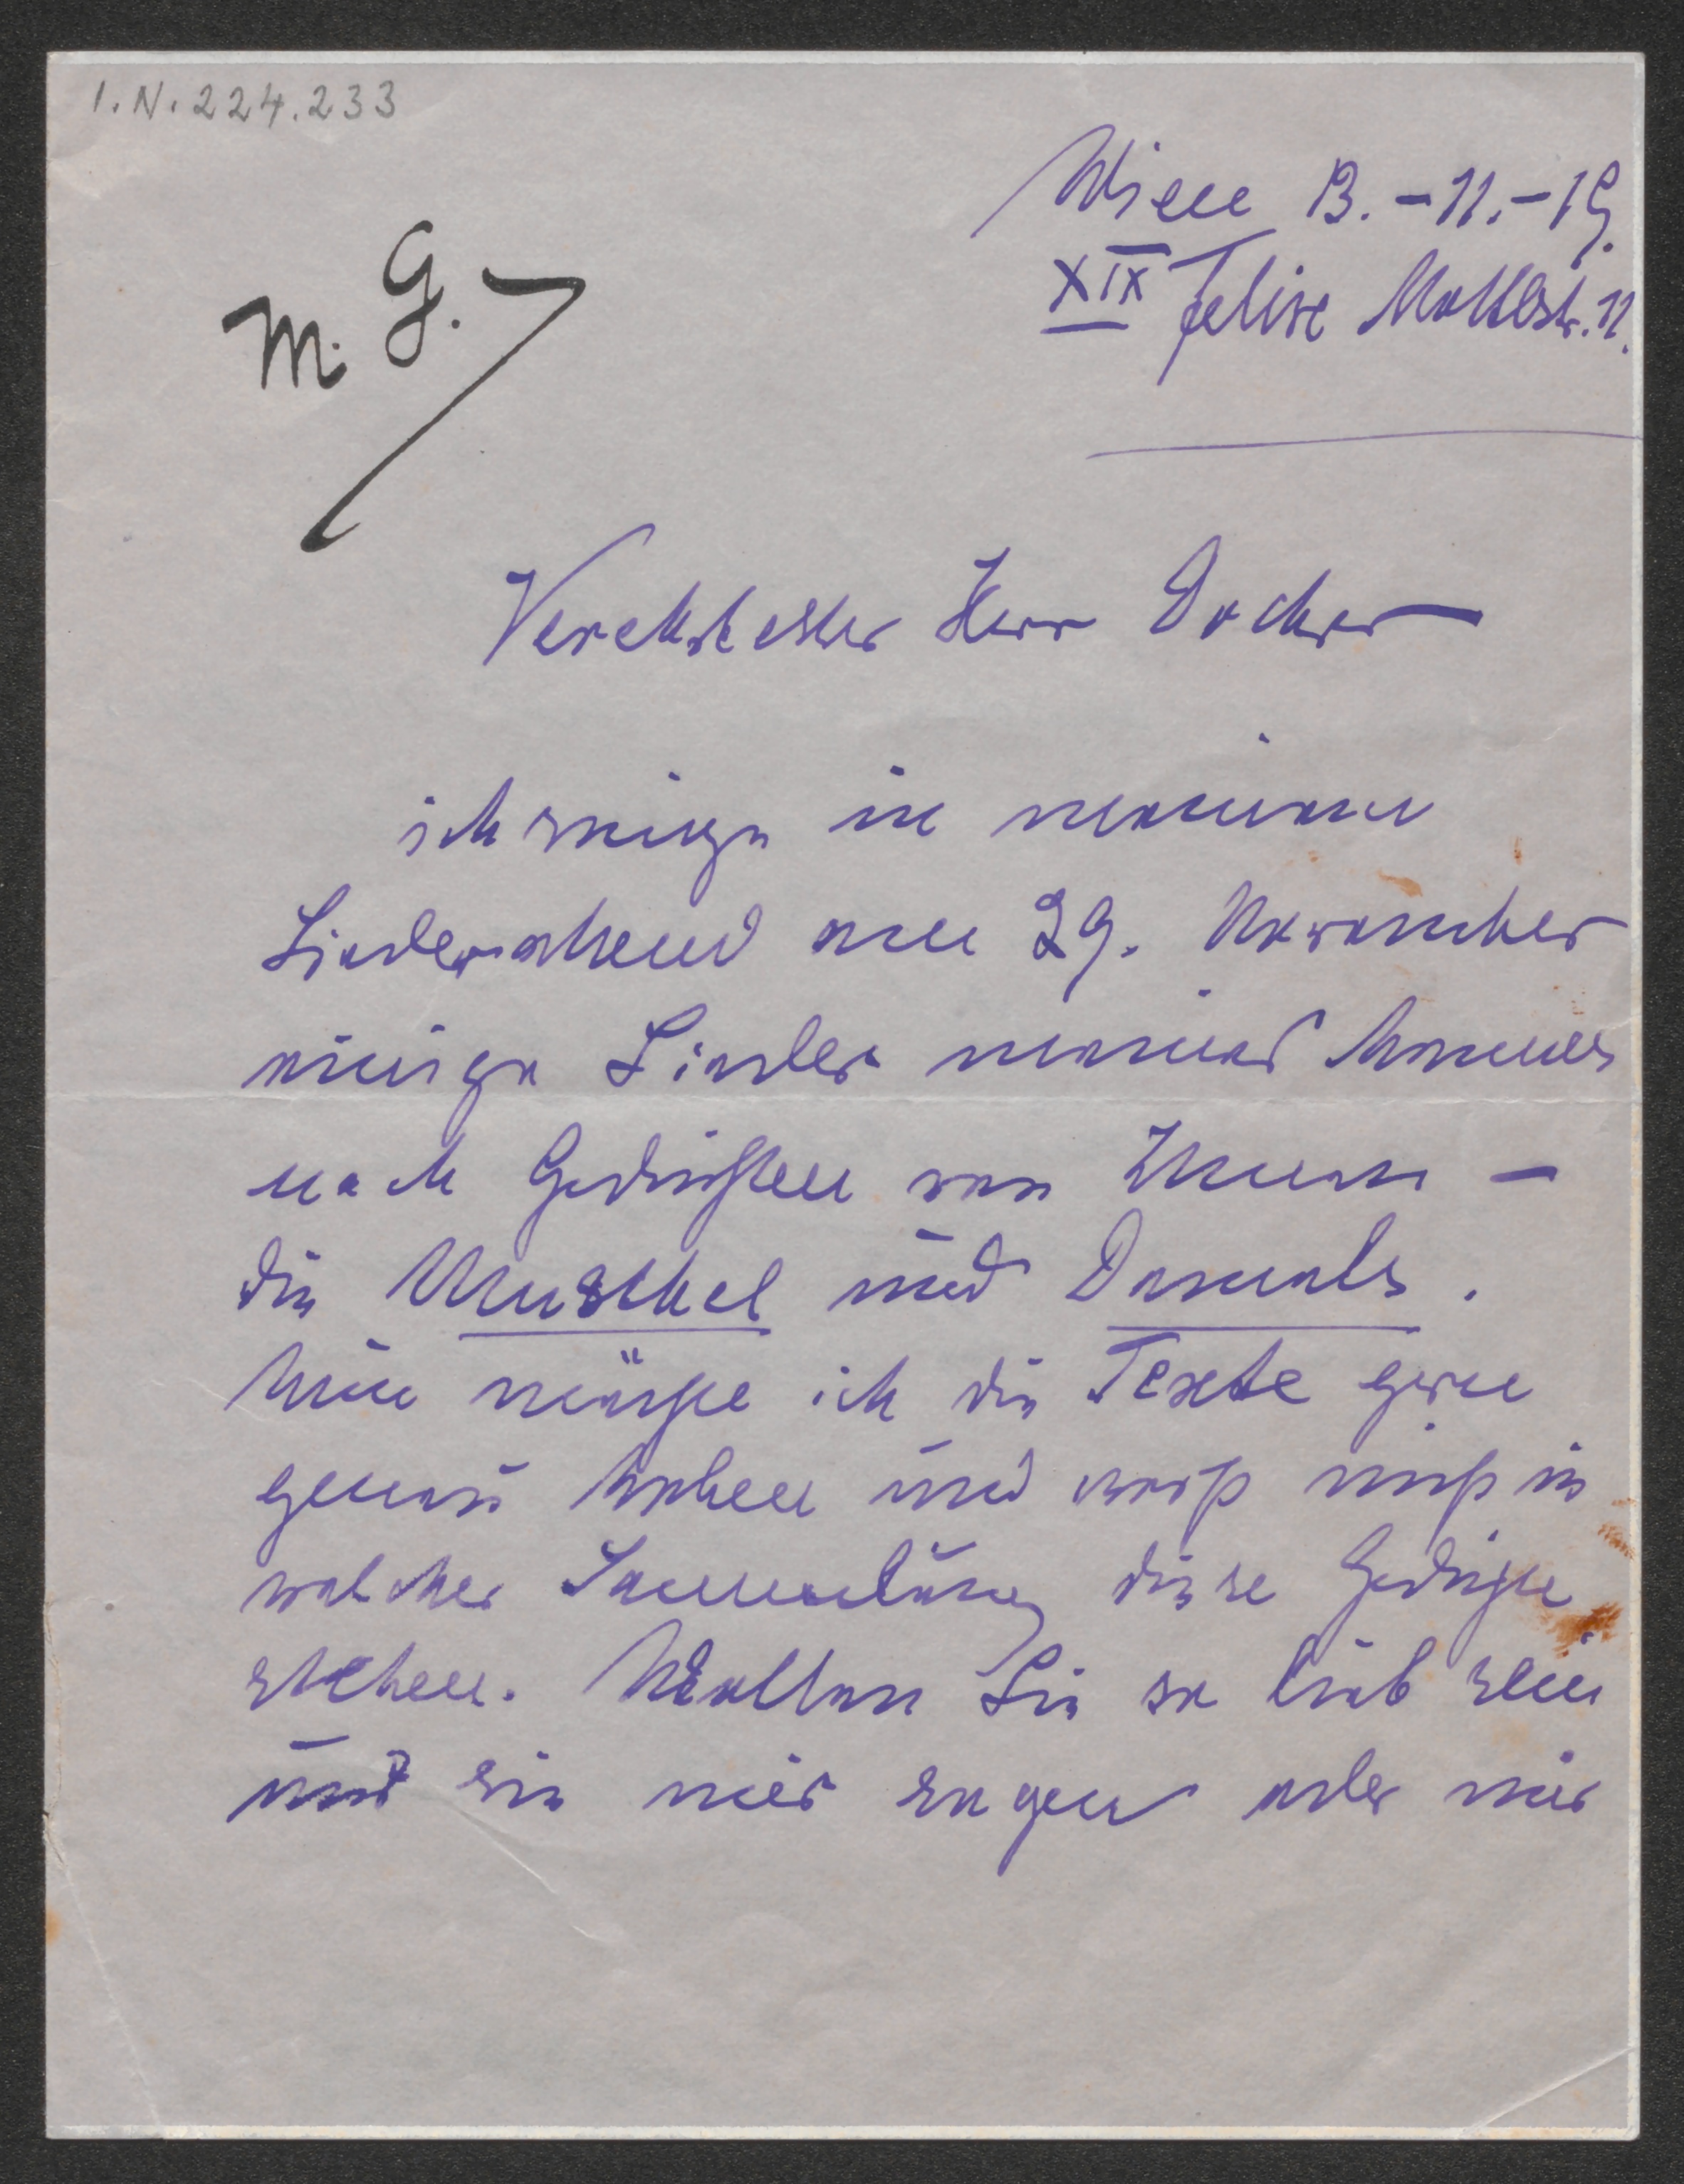 I.N. 224.233
Wien 13.-11.-19.
XIX Felix Mottlstr. 11.
M. G.
Verehrtester Herr Doctor
ich singe in meinem
Liederabend am 29. November
einige Lieder meines Mannes
nach Gedichten von Ihnen –
die Muschel und Damals.
Nun möchte ich die Texte gerne
genau haben und weiß nicht in
welcher Sammlung diese Gedichte
stehen. Wollten Sie so lieb sein
und sie mir sagen oder mir